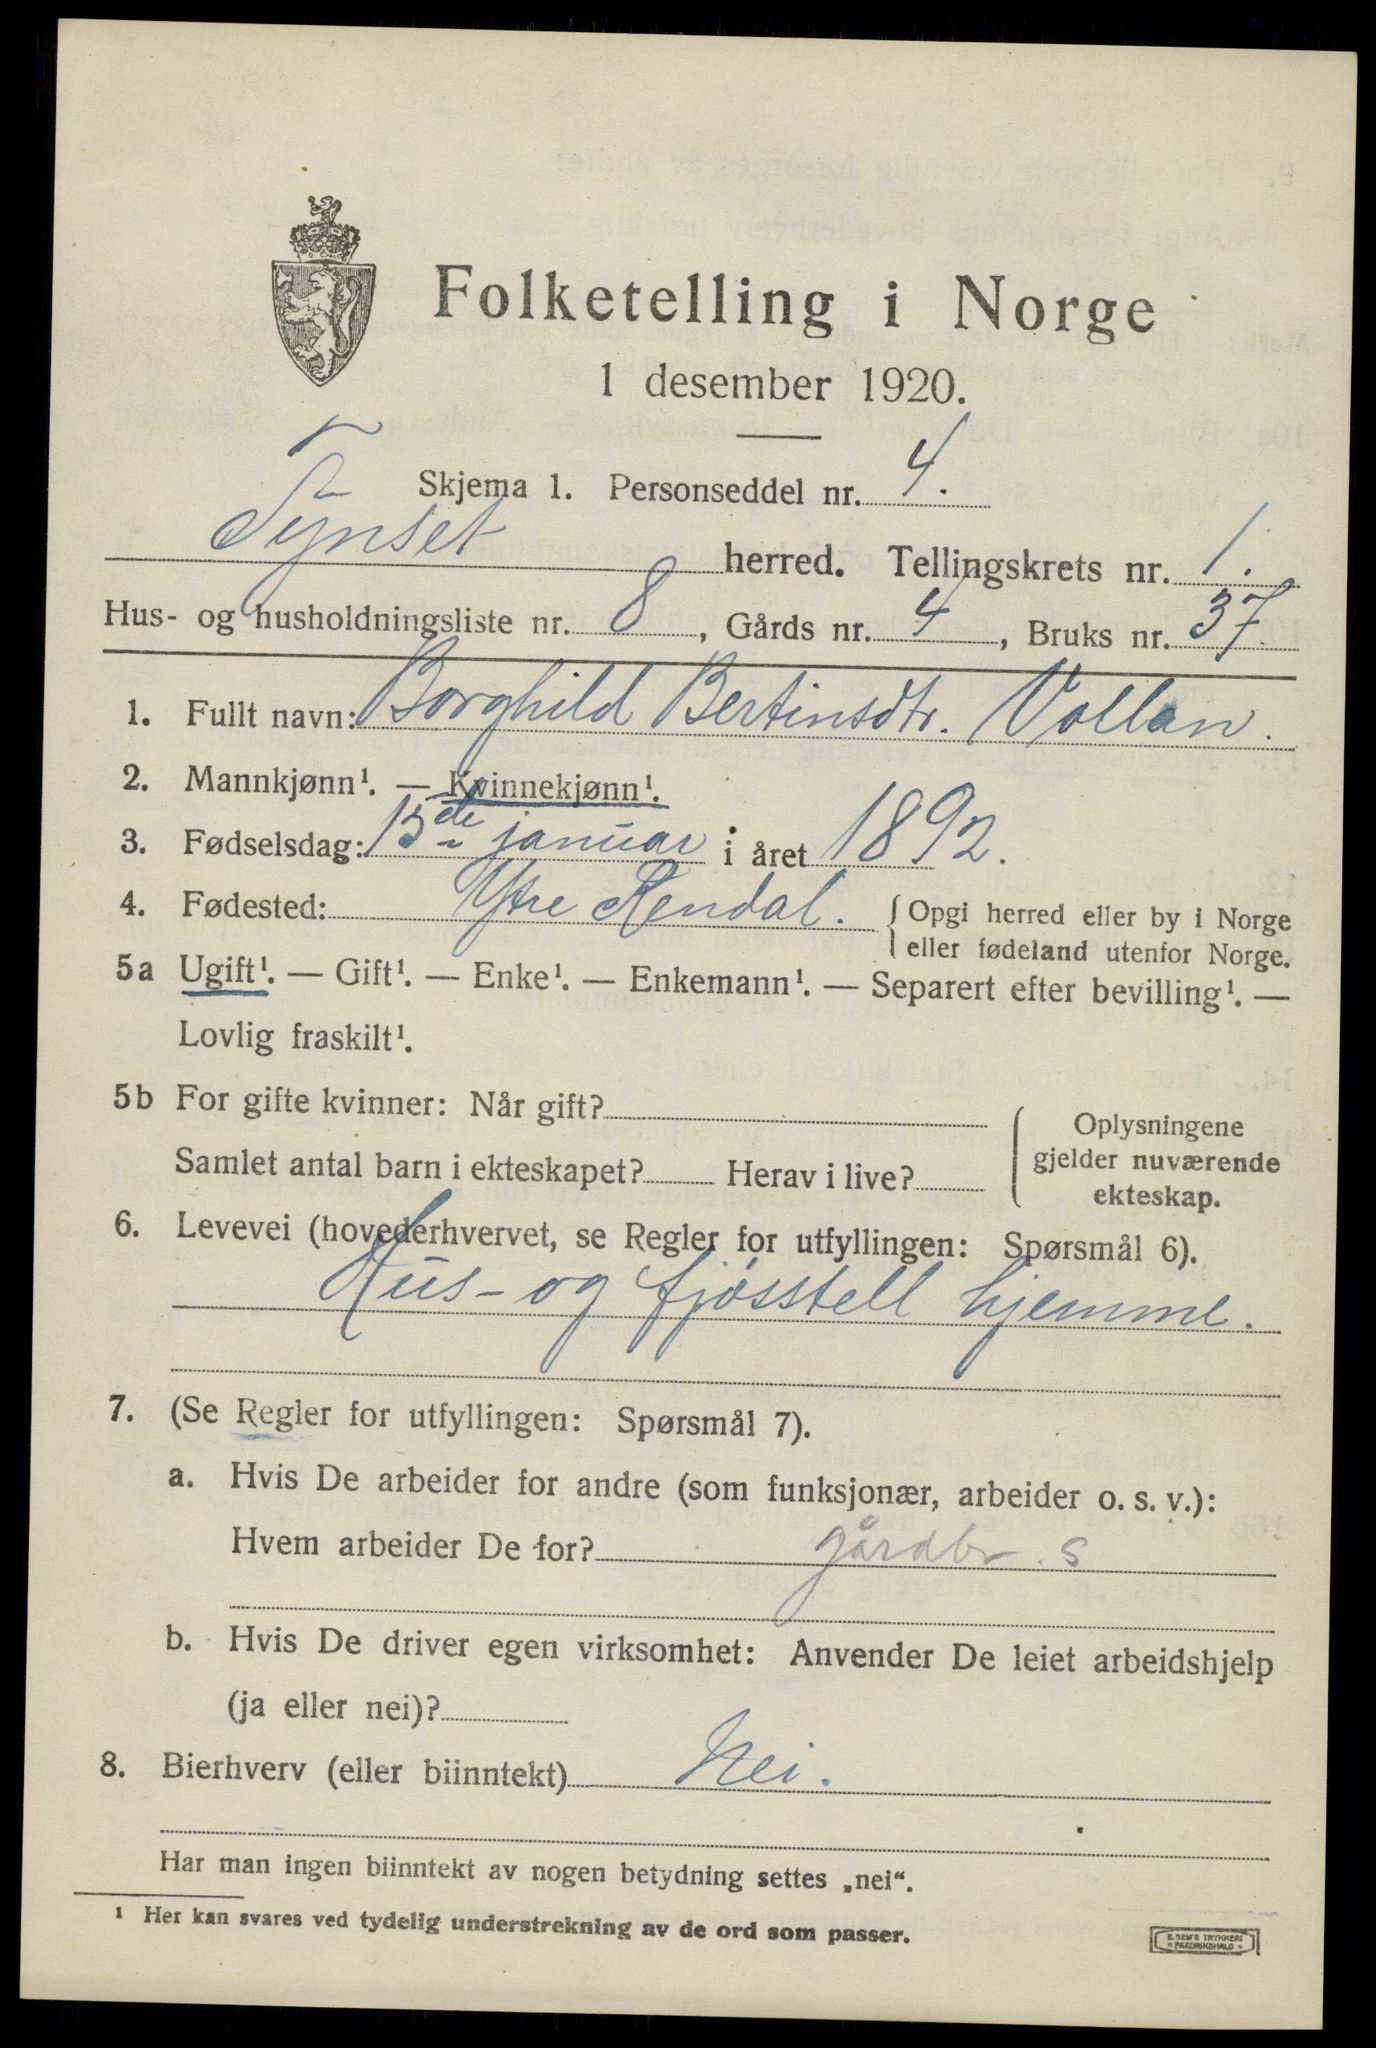 Folketelling i Norge
1 desember 1920.
Skjema 1. Personseddel nr. 4.
Tynset herred. Tellingskrets nr. 1.
Hus- og husholdningsliste nr. 8, Gårds nr. 4, Bruks nr. 37.
1. Fullt navn: Borghild Bertinsdtr. Vollan.
2. Mannkjønn¹. — Kvinnekjønn¹.
3. Fødselsdag: 13de januar i året 1892.
4. Fødested: Ytre Rendal. { Opgi herred eller by i Norge
eller fødeland utenfor Norge.
5a Ugift¹. — Gift¹. — Enke¹. — Enkemann¹. — Separert efter bevilling¹. —
Lovlig fraskilt¹.
5b For gifte kvinner: Når gift?
Samlet antal barn i ekteskapet? Herav i live?
{ Oplysningene
gjelder nuværende
ekteskap.
6. Levevei (hovederhvervet, se Regler for utfyllingen: Spørsmål 6).
Hus- og fjøsstell hjemme.
7. (Se Regler for utfyllingen: Spørsmål 7).
a. Hvis De arbeider for andre (som funksjonær, arbeider o. s. v.):
Hvem arbeider De for? gårdbr. s
b. Hvis De driver egen virksomhet: Anvender De leiet arbeidshjelp
(ja eller nei)?
8. Bierhverv (eller biinntekt) Nei.
Har man ingen biinntekt av nogen betydning settes „nei“.
¹ Her kan svares ved tydelig understrekning av de ord som passer.
E. SEM'S TRYKKERI
FREDRIKSHALD